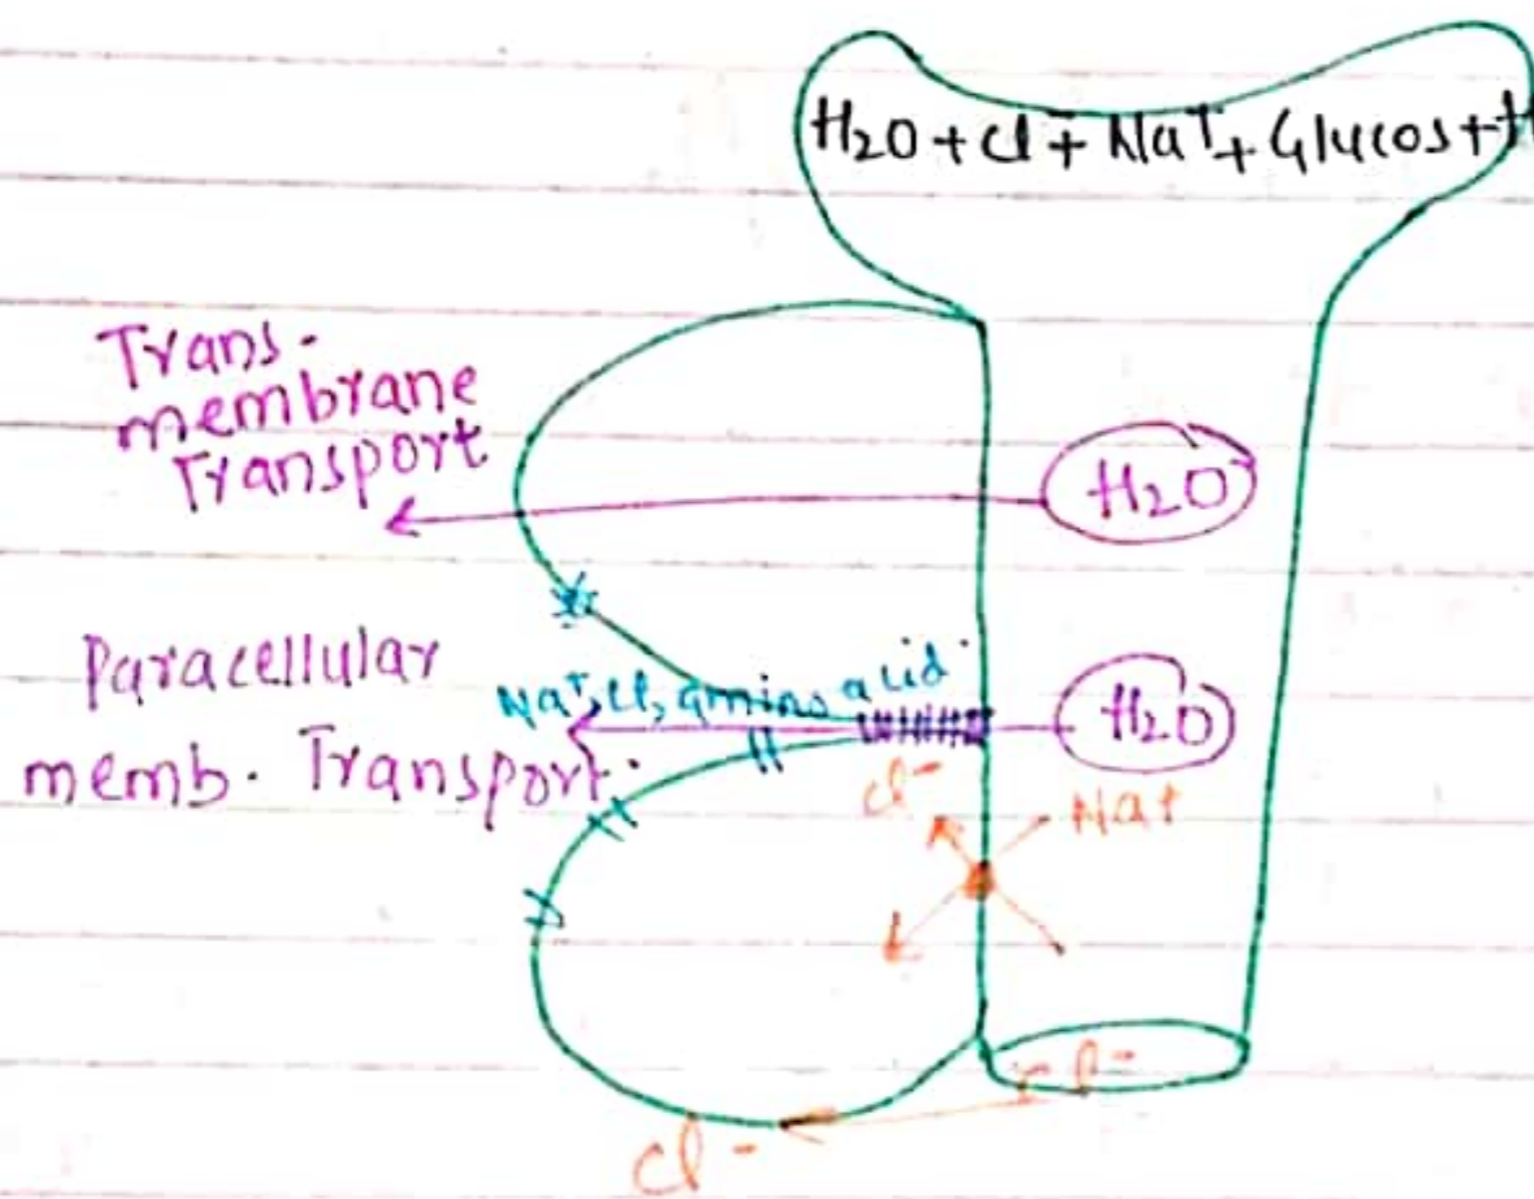 H₂O + Cl⁻ + Na⁺ + Glucos +
Trans-
membrane
Transport
H₂O
Paracellular
memb. Transport.
Na⁺, Cl, amino acid
H₂O
Cl⁻
Na+
Cl⁻